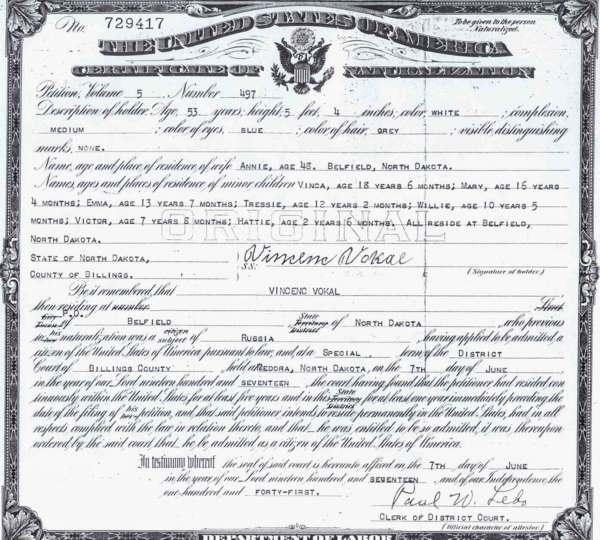 No. 729417
To be given to the person Naturalized.
THE UNITED STATES OF AMERICA
CERTIFICATE OF NATURALIZATION
Petition, Volume 5 Number 497
Description of holder: Age, 53 years; height, 5 feet, 4 inches; color, WHITE ; complexion,
MEDIUM ; color of eyes, BLUE ; color of hair, GREY ; visible distinguishing
marks, NONE.
Name, age and place of residence of wife ANNIE, AGE 48. BELFIELD, NORTH DAKOTA.
Names, ages and places of residence of minor children VINCA, AGE 18 YEARS 6 MONTHS; MARY, AGE 16 YEARS
4 MONTHS; EMMA, AGE 13 YEARS 7 MONTHS; TRESSIE, AGE 12 YEARS 2 MONTHS; WILLIE, AGE 10 YEARS 5
MONTHS; VICTOR, AGE 7 YEARS 8 MONTHS; HATTIE, AGE 2 YEARS 6 MONTHS. ALL RESIDE AT BELFIELD,
NORTH DAKOTA.
ORIGINAL
STATE OF NORTH DAKOTA,
S.S.
Vincenc Vokal
COUNTY OF BILLINGS.
(Signature of holder)
Be it remembered, that VINCENC VOKAL
then residing at number Street
P.O.
City Town of BELFIELD State Territory District of NORTH DAKOTA , who previous
to his naturalization was a citizen subject of RUSSIA , having applied to be admitted a
citizen of the United States of America pursuant to law, and, at a SPECIAL term of the DISTRICT
Court of BILLINGS COUNTY held at MEDORA, NORTH DAKOTA on the 7TH day of JUNE
in the year of our Lord nineteen hundred and SEVENTEEN , the court having found that the petitioner had resided con
tinuously within the United States for at least five years and in this State Territory District for at least one year immediately preceding the
date of the filing of his petition, and that said petitioner intends to reside permanently in the United States, had in all
respects complied with the law in relation thereto, and that he was entitled to be so admitted, it was thereupon
ordered by the said court that he be admitted as a citizen of the United States of America.
In testimony whereof the seal of said court is hereunto affixed on the 7TH day of JUNE
in the year of our Lord nineteen hundred and SEVENTEEN , and of our Independence the
one hundred and FORTY-FIRST.
Paul W. Lebo
CLERK OF DISTRICT COURT.
(Official character of attestor.)
DEPARTMENT OF LABOR